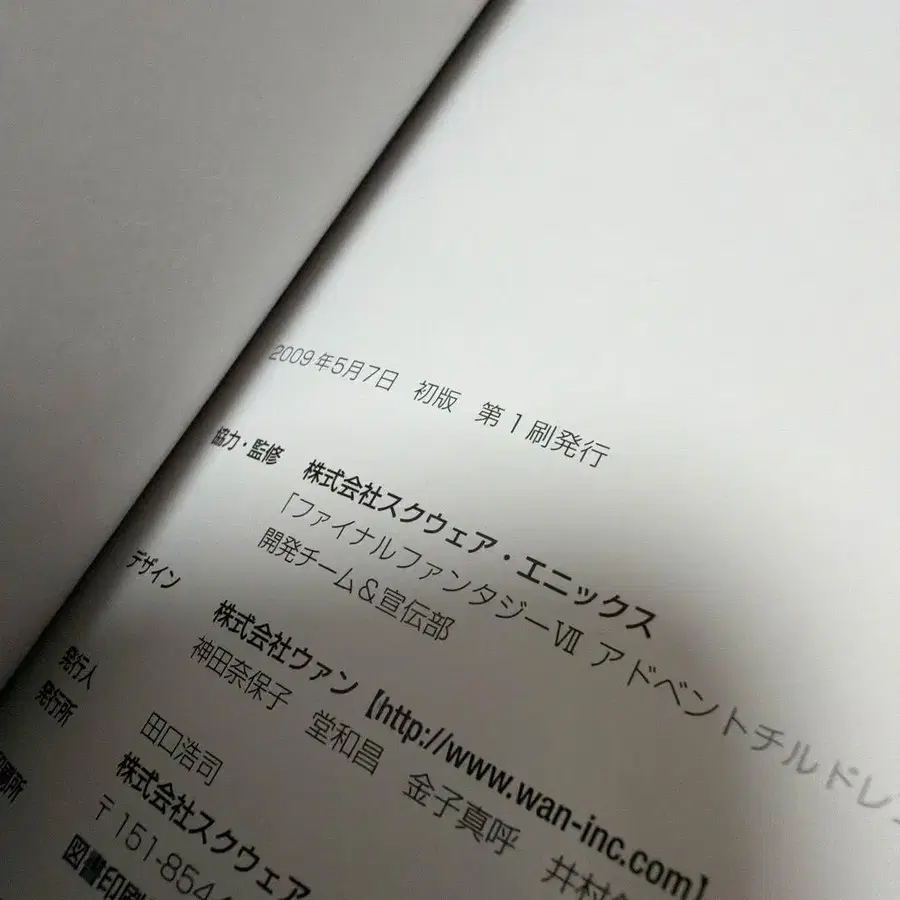 2009年5月7日 初版 第1刷発行
協力・監修 株式会社スクウェア・エニックス
「ファイナルファンタジーVII アドベントチルドレ
開発チーム&宣伝部
デザイン 株式会社ウァン【http://www.wan-inc.com】
神田奈保子 堂和昌 金子真呼 井村
発行人 田口浩司
発行所 株式会社スクウェア
〒151-854
印刷所 図書印刷